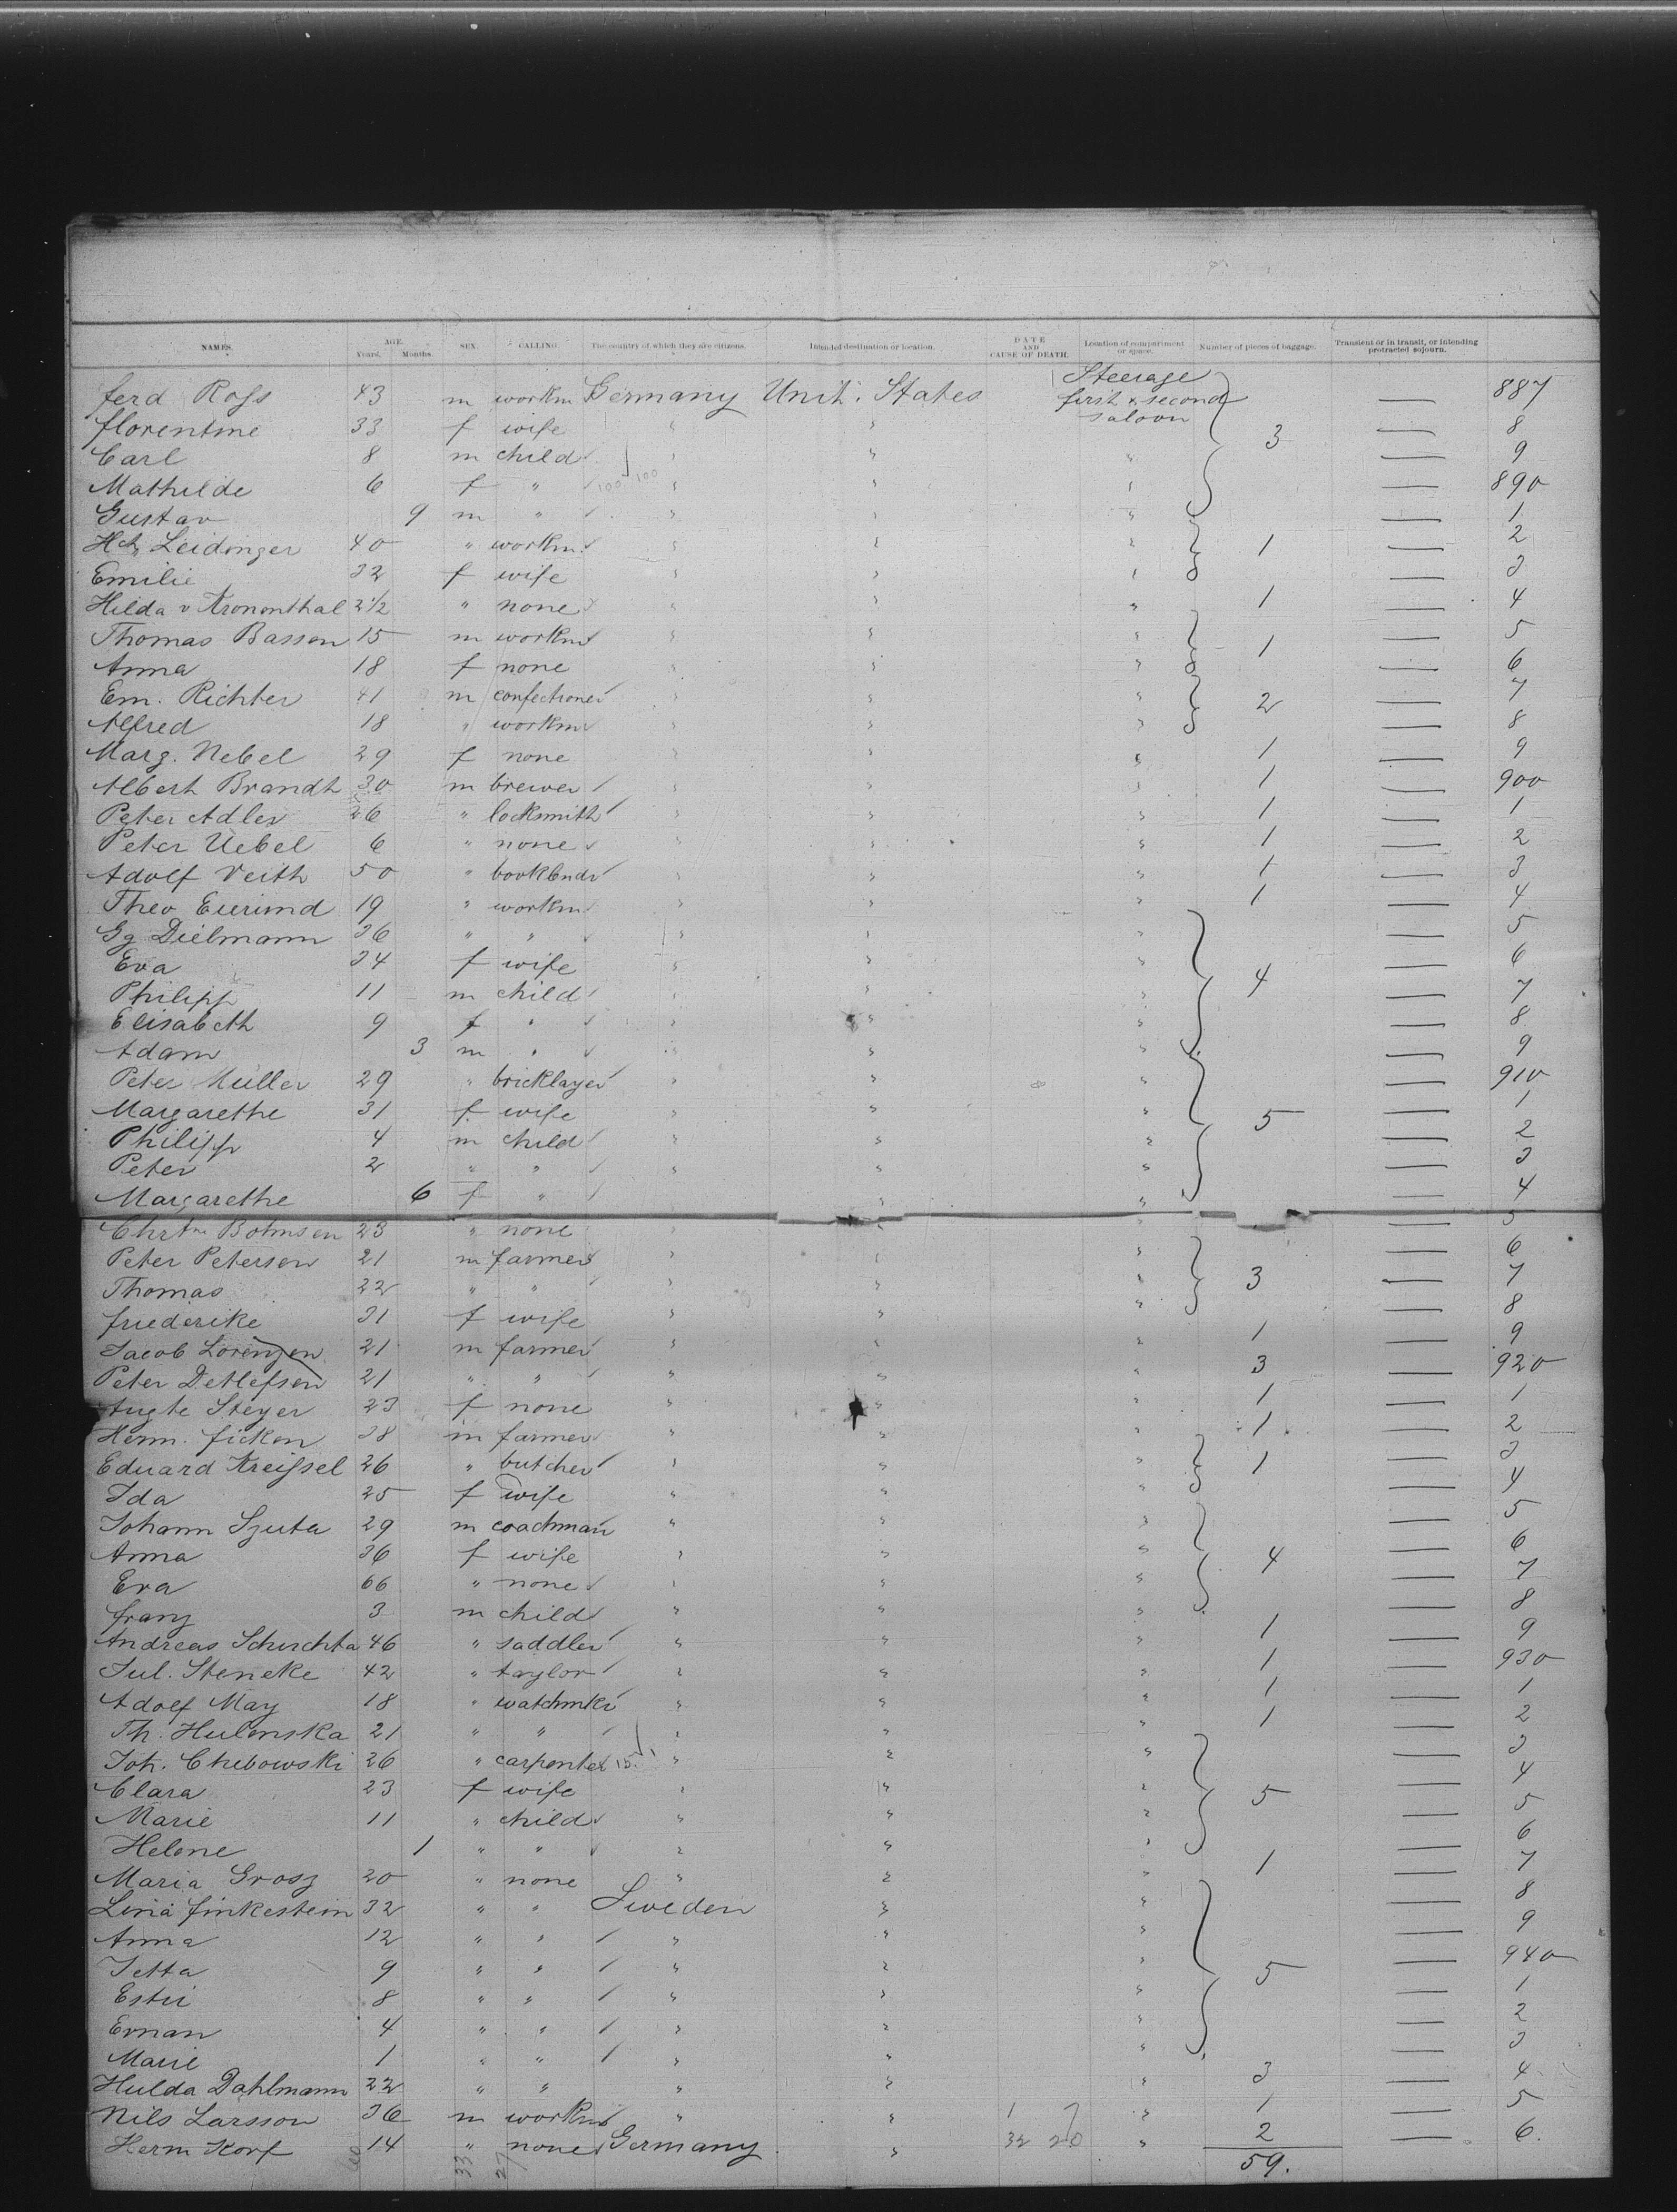 NAMES. AGE. Years. Months. SEX. CALLING. The country of which they are citizens. Intended destination or location. DATE AND CAUSE OF DEATH. Location of compartment or space. Number of pieces of baggage. Transient or in transit, or intending protracted sojourn.
ferd Rofs 43 m workm Germany Unit. States Steerage first & second saloon — 887
florentine 33 f wife " " 3 — 8
Carl 8 m child " " " — 9
Mathilde 6 f " 100 100 " " " — 890
Gustav 9 m " " " " — 1
Hch Leidinger 40 " workm " " " 1 — 2
Emilie 32 f wife " " " — 3
Hilda v Krononthal 2½ " none " " " 1 — 4
Thomas Bassen 15 m workm " " " 1 — 5
Anna 18 f none " " " — 6
Em. Richter 41 m confectioner " " " 2 — 7
Alfred 18 " workm " " " — 8
Marg. Nebel 29 f none " " " 1 — 9
Albert Brandt 30 m brewer " " " 1 — 900
Peter Adler 26 " locksmith " " " 1 — 1
Peter Uebel 6 " none " " " 1 — 2
Adolf Veith 50 " bookbndr " " " 1 — 3
Theo Eierund 19 " workm " " " 1 — 4
Gg Dielmann 36 " " " " " — 5
Eva 34 f wife " " " — 6
Philipp 11 m child " " " 4 — 7
Elisabeth 9 f " " " " — 8
Adam 3 m " " " " — 9
Peter Müller 29 " bricklayer " " " — 910
Margarethe 31 f wife " " " 5 — 1
Philipp 4 m child " " " — 2
Peter 2 " " " " " — 3
Margarethe 6 f " " " " — 4
Chrtne Bohmsen 23 " none " " " — 5
Peter Petersen 21 m farmer " " " — 6
Thomas 22 " " " " " 3 — 7
friederike 31 f wife " " " — 8
Jacob Lorenzen 21 m farmer " " " 1 — 9
Peter Detlefsen 21 " " " " " 3 — 920
Augte Steyer 23 f none " " " 1 — 1
Herm. ficken 38 m farmer " " " 1 — 2
Eduard Kreifsel 26 " butcher " " " 1 — 3
Ida 25 f wife " " " — 4
Johann Szuta 29 m coachman " " " — 5
Anna 36 f wife " " " 4 — 6
Eva 66 " none " " " — 7
franz 3 m child " " " — 8
Andreas Schirchta 46 " saddler " " " 1 — 9
Jul. Steneke 42 " taylor " " " 1 — 930
Adolf May 18 " watchmkr " " " 1 — 1
Th. Hulenska 21 " " " " " 1 — 2
Joh. Chibowski 26 " carpenter 15 " " " — 3
Clara 23 f wife " " " 5 — 4
Marie 11 " child " " " — 5
Helene 1 " " " " " — 6
Maria Grosz 20 " none " " " 1 — 7
Lina finkestein 32 " " Sweden " " — 8
Anna 12 " " " " " — 9
Jetta 9 " " " " " 5 — 940
Estii 8 " " " " " — 1
Ernan 4 " " " " " — 2
Marie 1 " " " " " — 3
Hulda Dahlmann 22 " " " " " 3 — 4
Nils Larsson 36 m workm " " " 1 — 5
Herm Korf 14 " none Germany " 32 20 " 2 — 6.
33 27 59.